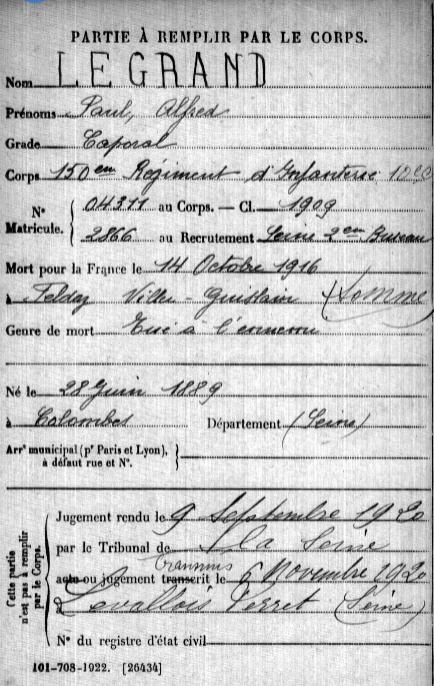 PARTIE À REMPLIR PAR LE CORPS.
Nom LEGRAND
Prénoms Paul, Alfred
Grade Caporal
Corps 150em Régiment d'Infanterie
N° Matricule. { 04311 au Corps. — Cl. 1909
2866 au Recrutement Seine 2em Bureau
Mort pour la France le 14 Octobre 1916
à Villers-Guislain (Somme)
Genre de mort Tué à l'ennemi
Né le 28 Juin 1889
à Colombes Département (Seine)
Arrt municipal (pr Paris et Lyon), à défaut rue et N°. }
Cette partie n'est pas à remplir par le Corps. {
Jugement rendu le 9 Septembre 1920
par le Tribunal de la Seine
acte ou jugement transcrit le 6 Novembre 1920
à Levallois Perret (Seine)
N° du registre d'état civil
101-708-1922. [26434]